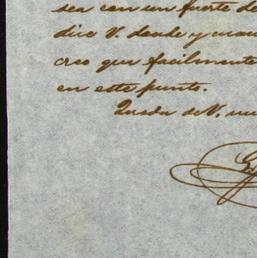 sea con un fuerte de
dice V. desde y cuan
creo que facilmente
en este punto.
Queda de V. mu